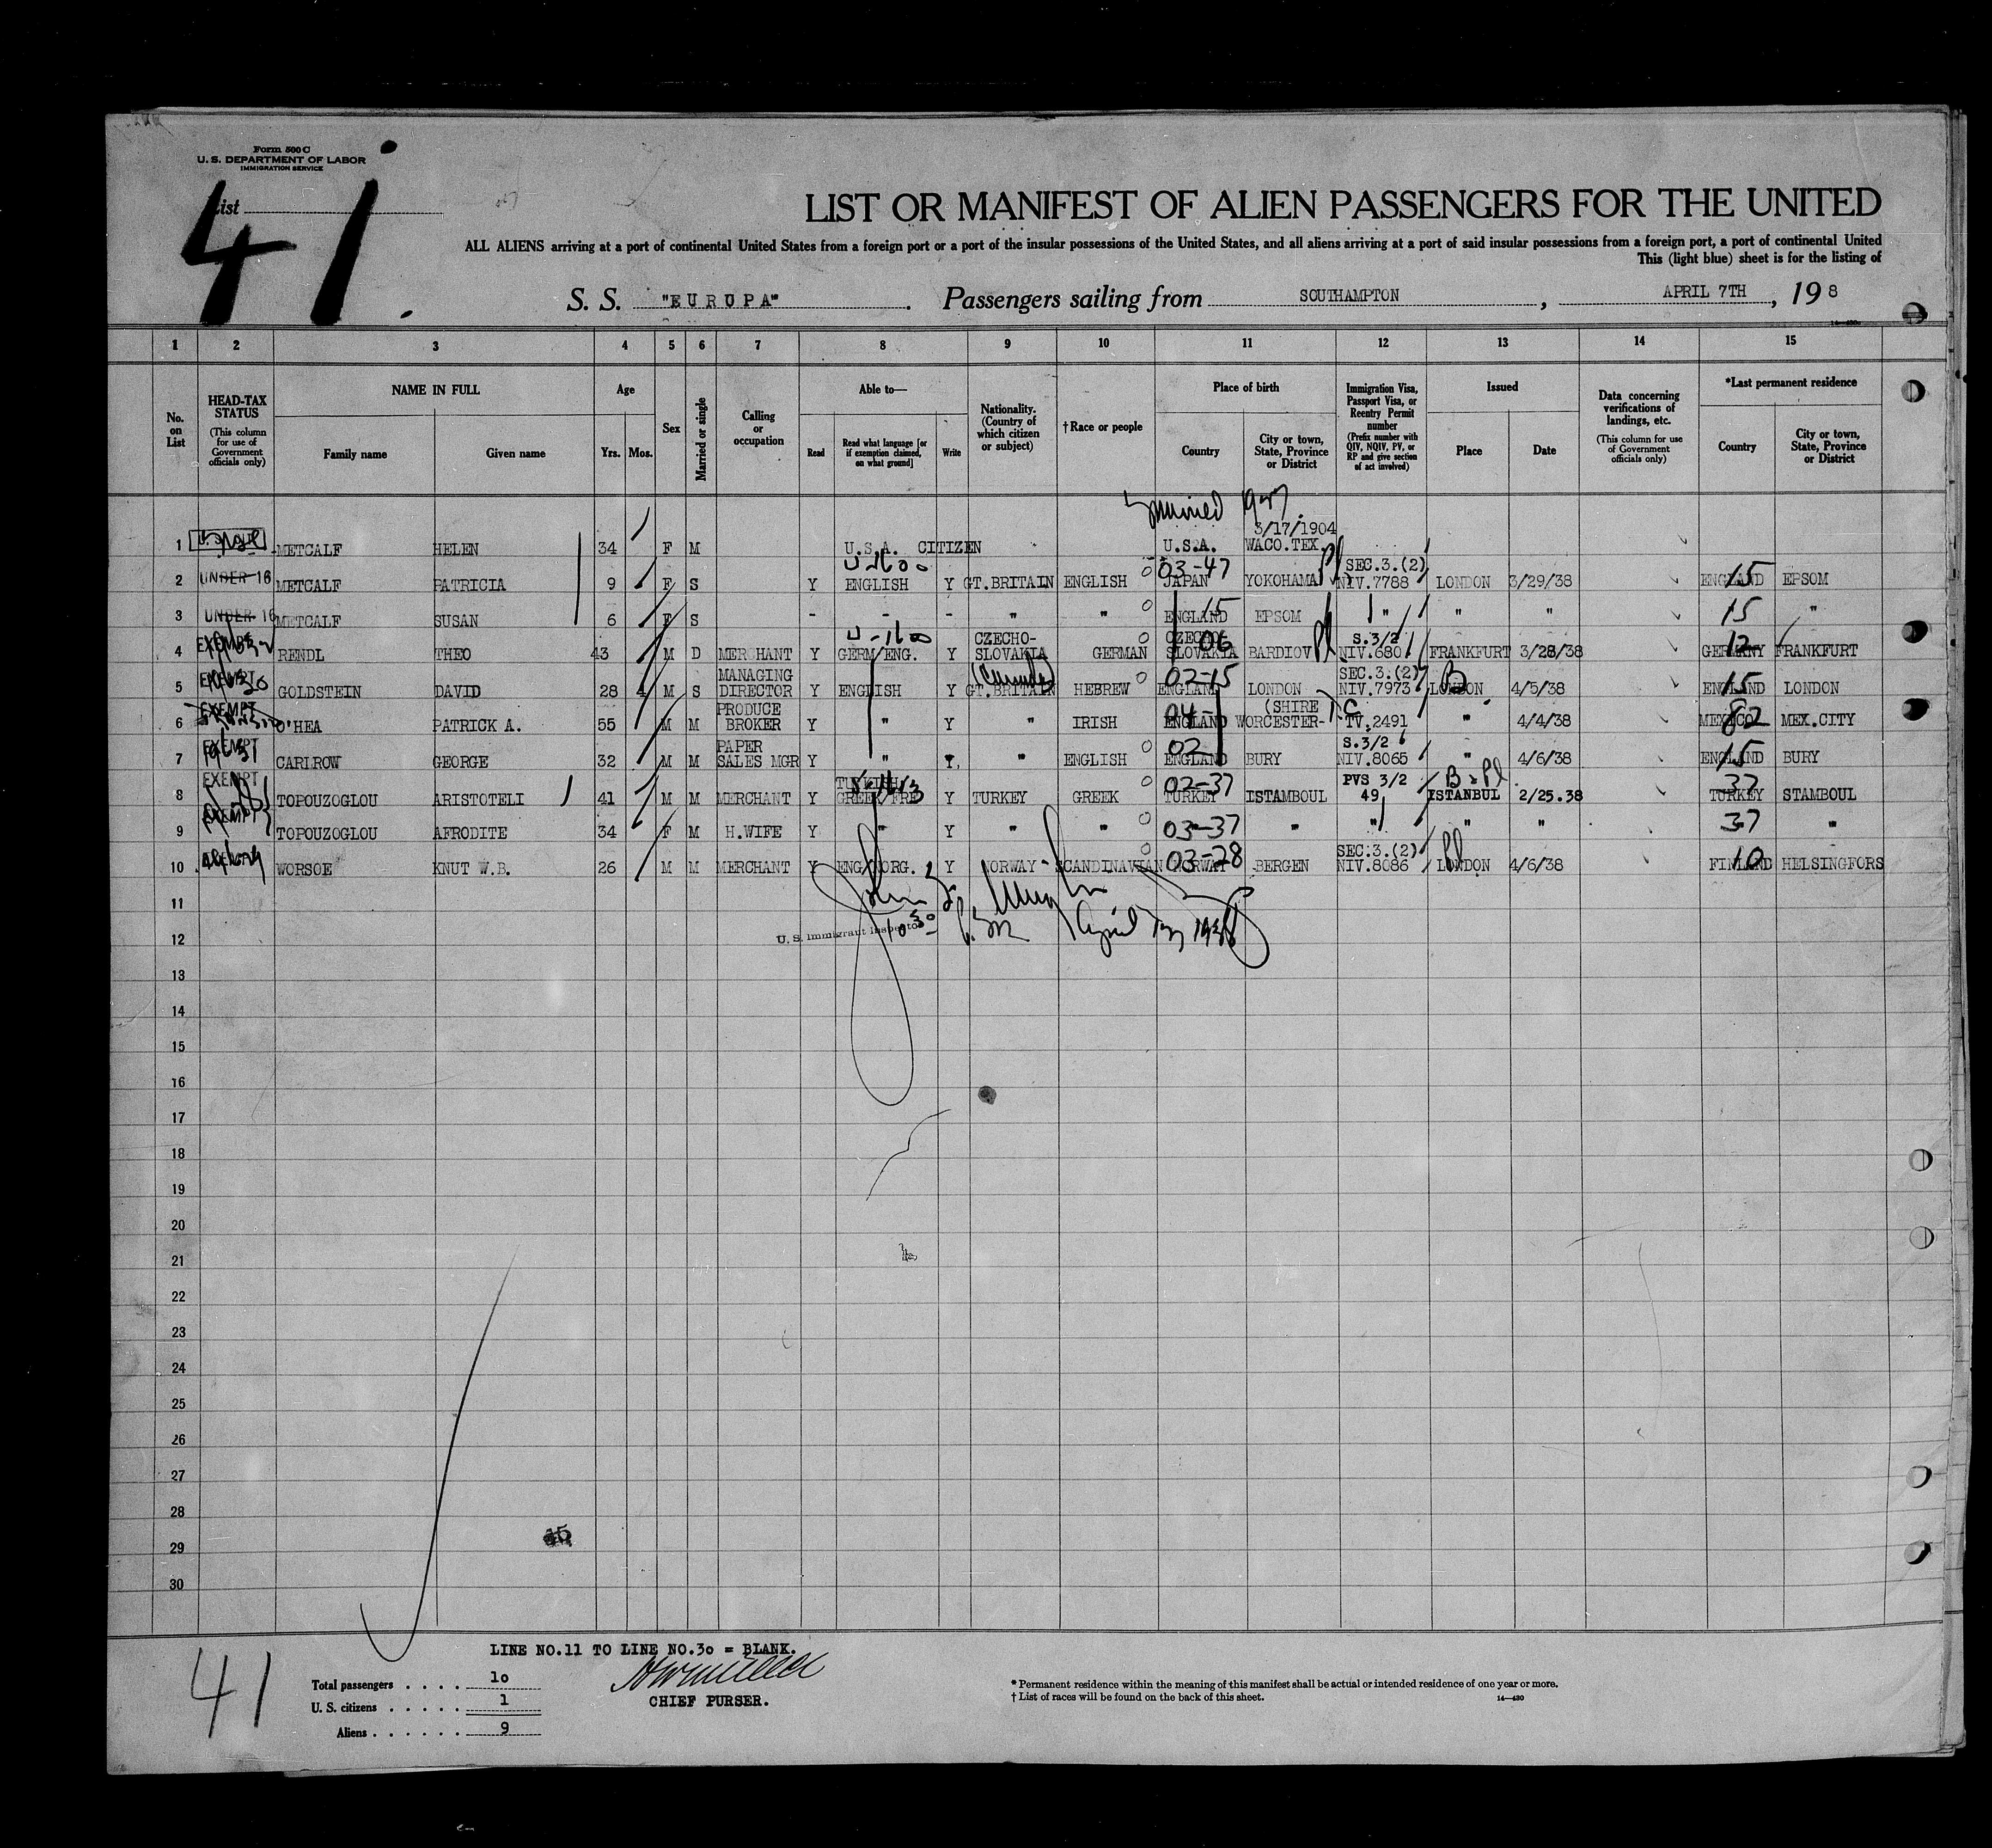 Form 500 C
U. S. DEPARTMENT OF LABOR
IMMIGRATION SERVICE
List
41
LIST OR MANIFEST OF ALIEN PASSENGERS FOR THE UNITED
ALL ALIENS arriving at a port of continental United States from a foreign port or a port of the insular possessions of the United States, and all aliens arriving at a port of said insular possessions from a foreign port, a port of continental United
This (light blue) sheet is for the listing of
S. S. "EUROPA" Passengers sailing from SOUTHAMPTON, APRIL 7TH, 19 8
1 2 3 4 5 6 7 8 9 10 11 12 13 14 15
No. on List
HEAD-TAX STATUS (This column for use of Government officials only)
NAME IN FULL Family name Given name
Age Yrs. Mos.
Sex
Married or single
Calling or occupation
Able to— Read Read what language [or if exemption claimed, on what ground] Write
Nationality. (Country of which citizen or subject)
†Race or people
Place of birth Country City or town, State, Province or District
Immigration Visa, Passport Visa, or Reentry Permit number (Prefix number with QIV, NQIV, PV, or RP and give section of act involved)
Issued Place Date
Data concerning verifications of landings, etc. (This column for use of Government officials only)
*Last permanent residence Country City or town, State, Province or District
3/17/1904
1 METCALF HELEN 34 F M U.S.A. CITIZEN U.S.A. WACO.TEX.
03-47 SEC.3.(2)
2 UNDER 16 METCALF PATRICIA 9 F S Y ENGLISH Y GT.BRITAIN ENGLISH JAPAN YOKOHAMA NIV.7788 LONDON 3/29/38 ENGLAND 15 EPSOM
3 UNDER 16 METCALF SUSAN 6 F S - - - " " ENGLAND 15 EPSOM " " " 15 "
EXEMPT CZECHO- CZECHO- S.3/2
4 RENDL THEO 43 M D MERCHANT Y GERM/ENG. Y SLOVAKIA GERMAN SLOVAKIA 06 BARDIOV NIV.680 FRANKFURT 3/28/38 GERMANY 12 FRANKFURT
EXEMPT MANAGING 02-15 SEC.3.(2)
5 GOLDSTEIN DAVID 28 4 M S DIRECTOR Y ENGLISH Y GT.BRITAIN HEBREW ENGLAND LONDON NIV.7973 LONDON B 4/5/38 ENGLAND 15 LONDON
EXEMPT PRODUCE (SHIRE C
6 O'HEA PATRICK A. 55 M M BROKER Y " Y " IRISH ENGLAND WORCESTER- TV.2491 " 4/4/38 MEXICO 82 MEX.CITY
EXEMPT PAPER 02 S.3/2
7 CARLROW GEORGE 32 M M SALES MGR Y " Y, " ENGLISH ENGLAND BURY NIV.8065 " 4/6/38 ENGLAND 15 BURY
EXEMPT TURKISH 02-37 PVS 3/2
8 TOPOUZOGLOU ARISTOTELI 41 M M MERCHANT Y GREEK/FRE Y TURKEY GREEK TURKEY ISTAMBOUL 49 ISTANBUL 2/25.38 TURKEY 37 STAMBOUL
EXEMPT
9 TOPOUZOGLOU AFRODITE 34 F M H.WIFE Y " Y " " 03-37 " " " " 37 "
SEC.3.(2)
10 WORSOE KNUT W.B. 26 M M MERCHANT Y ENG/NORG. Y NORWAY- SCANDINAVIAN NORWAY 03-28 BERGEN NIV.8086 LONDON 4/6/38 FINLAND 10 HELSINGFORS
11
U. S. Immigrant Inspector
12
13
14
15
16
17
18
19
20
21
22
23
24
25
26
27
28
29
30
LINE NO.11 TO LINE NO.30 = BLANK.
41
Total passengers . . . . 10
U. S. citizens . . . . . 1
Aliens . . . . . . 9
CHIEF PURSER.
* Permanent residence within the meaning of this manifest shall be actual or intended residence of one year or more.
† List of races will be found on the back of this sheet. 14—430